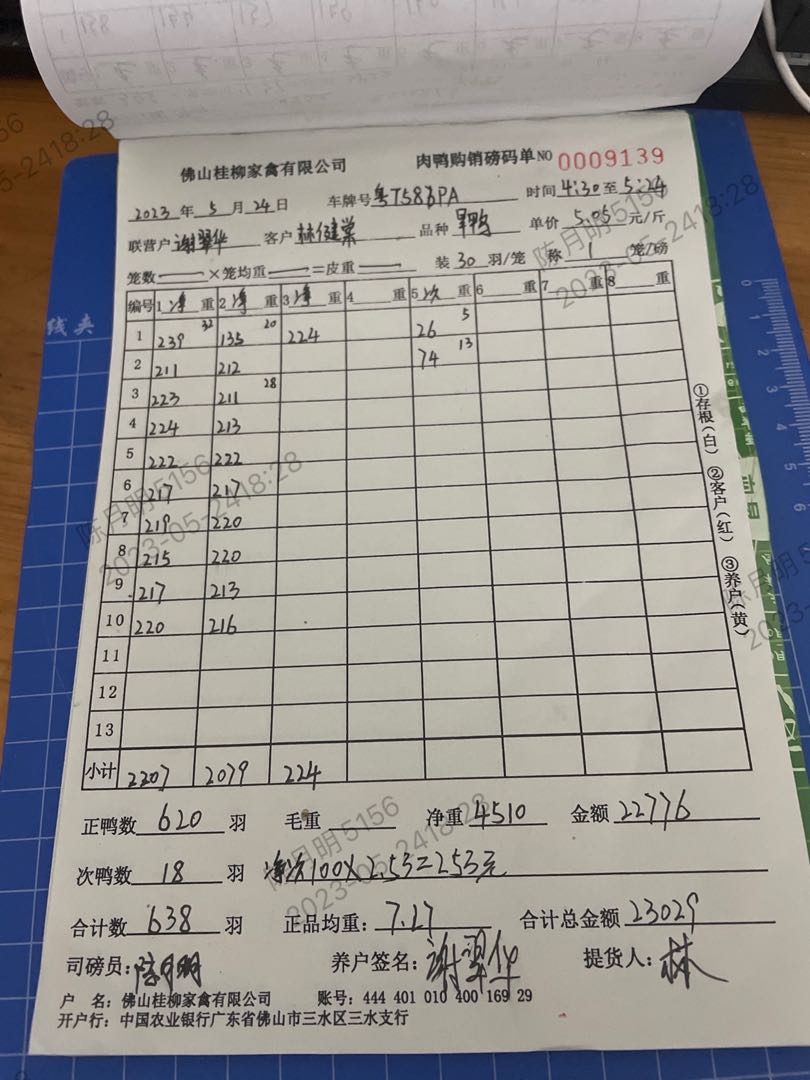 佛山桂柳家禽有限公司 肉鸭购销磅码单 NO 0009139
2023 年 5 月 24 日 车牌号 粤T583PA 时间 4:30 至 5:24
联营户 谢翠华 客户 林健棠 品种 旱鸭 单价 5.05 元/斤
笼数 —— ×笼均重 —— =皮重 —— 装 30 羽/笼 称 1 笼/磅
编号 1 净 重 2 净 重 3 净 重 4 重 5 次 重 6 重 7 重 8 重
1 239 32 135 20 224 26 5
2 211 212 74 13
3 223 211 28
4 224 213
5 222 222
6 217 217
7 219 220
8 215 220
9 217 213
10 220 216
11
12
13
小计 2207 2079 224
正鸭数 620 羽 毛重 净重 4510 金额 22776
次鸭数 18 羽 净次100×2.53=253元
合计数 638 羽 正品均重: 7.27 合计总金额 23029
司磅员: 陈月明 养户签名: 谢翠华 提货人: 林
户 名: 佛山桂柳家禽有限公司 账号: 444 401 010 400 169 29
开户行: 中国农业银行广东省佛山市三水区三水支行
①存根(白) ②客户(红) ③养户(黄)
线夹
陈月明 5156
2023-05-24 18:28